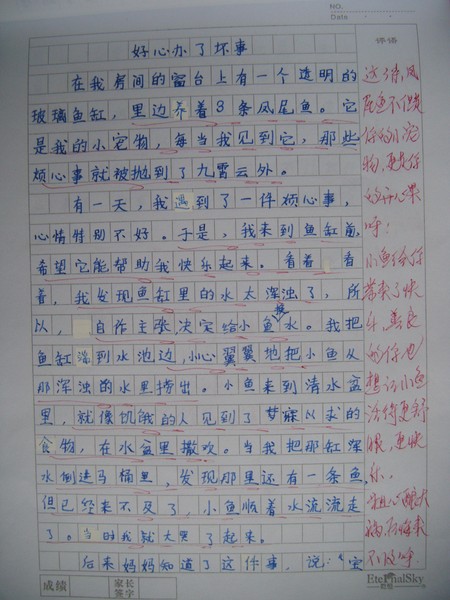 NO.
Date
评语
好心办了坏事
在我房间的窗台上有一个透明的
玻璃鱼缸，里边养着8条凤尾鱼。它
是我的小宠物，每当我见到它，那些
烦心事就被抛到了九霄云外。
有一天，我遇到了一件烦心事，
心情特别不好。于是，我来到鱼缸前，
希望它能帮助我快乐起来。看着看
着，我发现鱼缸里的水太浑浊了，所
以，自作主张决定给小鱼换水。我把
鱼缸端到水池边，小心翼翼地把小鱼从
那浑浊的水里捞出。小鱼来到清水盆
里，就像饥饿的人见到了梦寐以求的
食物，在水盆里撒欢。当我把那缸浑
水倒进马桶里，发现那里还有一条鱼，
但已经来不及了，小鱼顺着水流流走
了。当时我就大哭了起来。
后来妈妈知道了这件事，说："宝
这8条凤
尾鱼不仅是
你的小宠
物，更是你
的开心果
呀！
小鱼给你
带来了快
乐，善良
的你也
想让小鱼
活得更舒
服，更快
乐。
粗心酿大
病，后悔来
不及呀
成绩
家长
签字
EternalSky